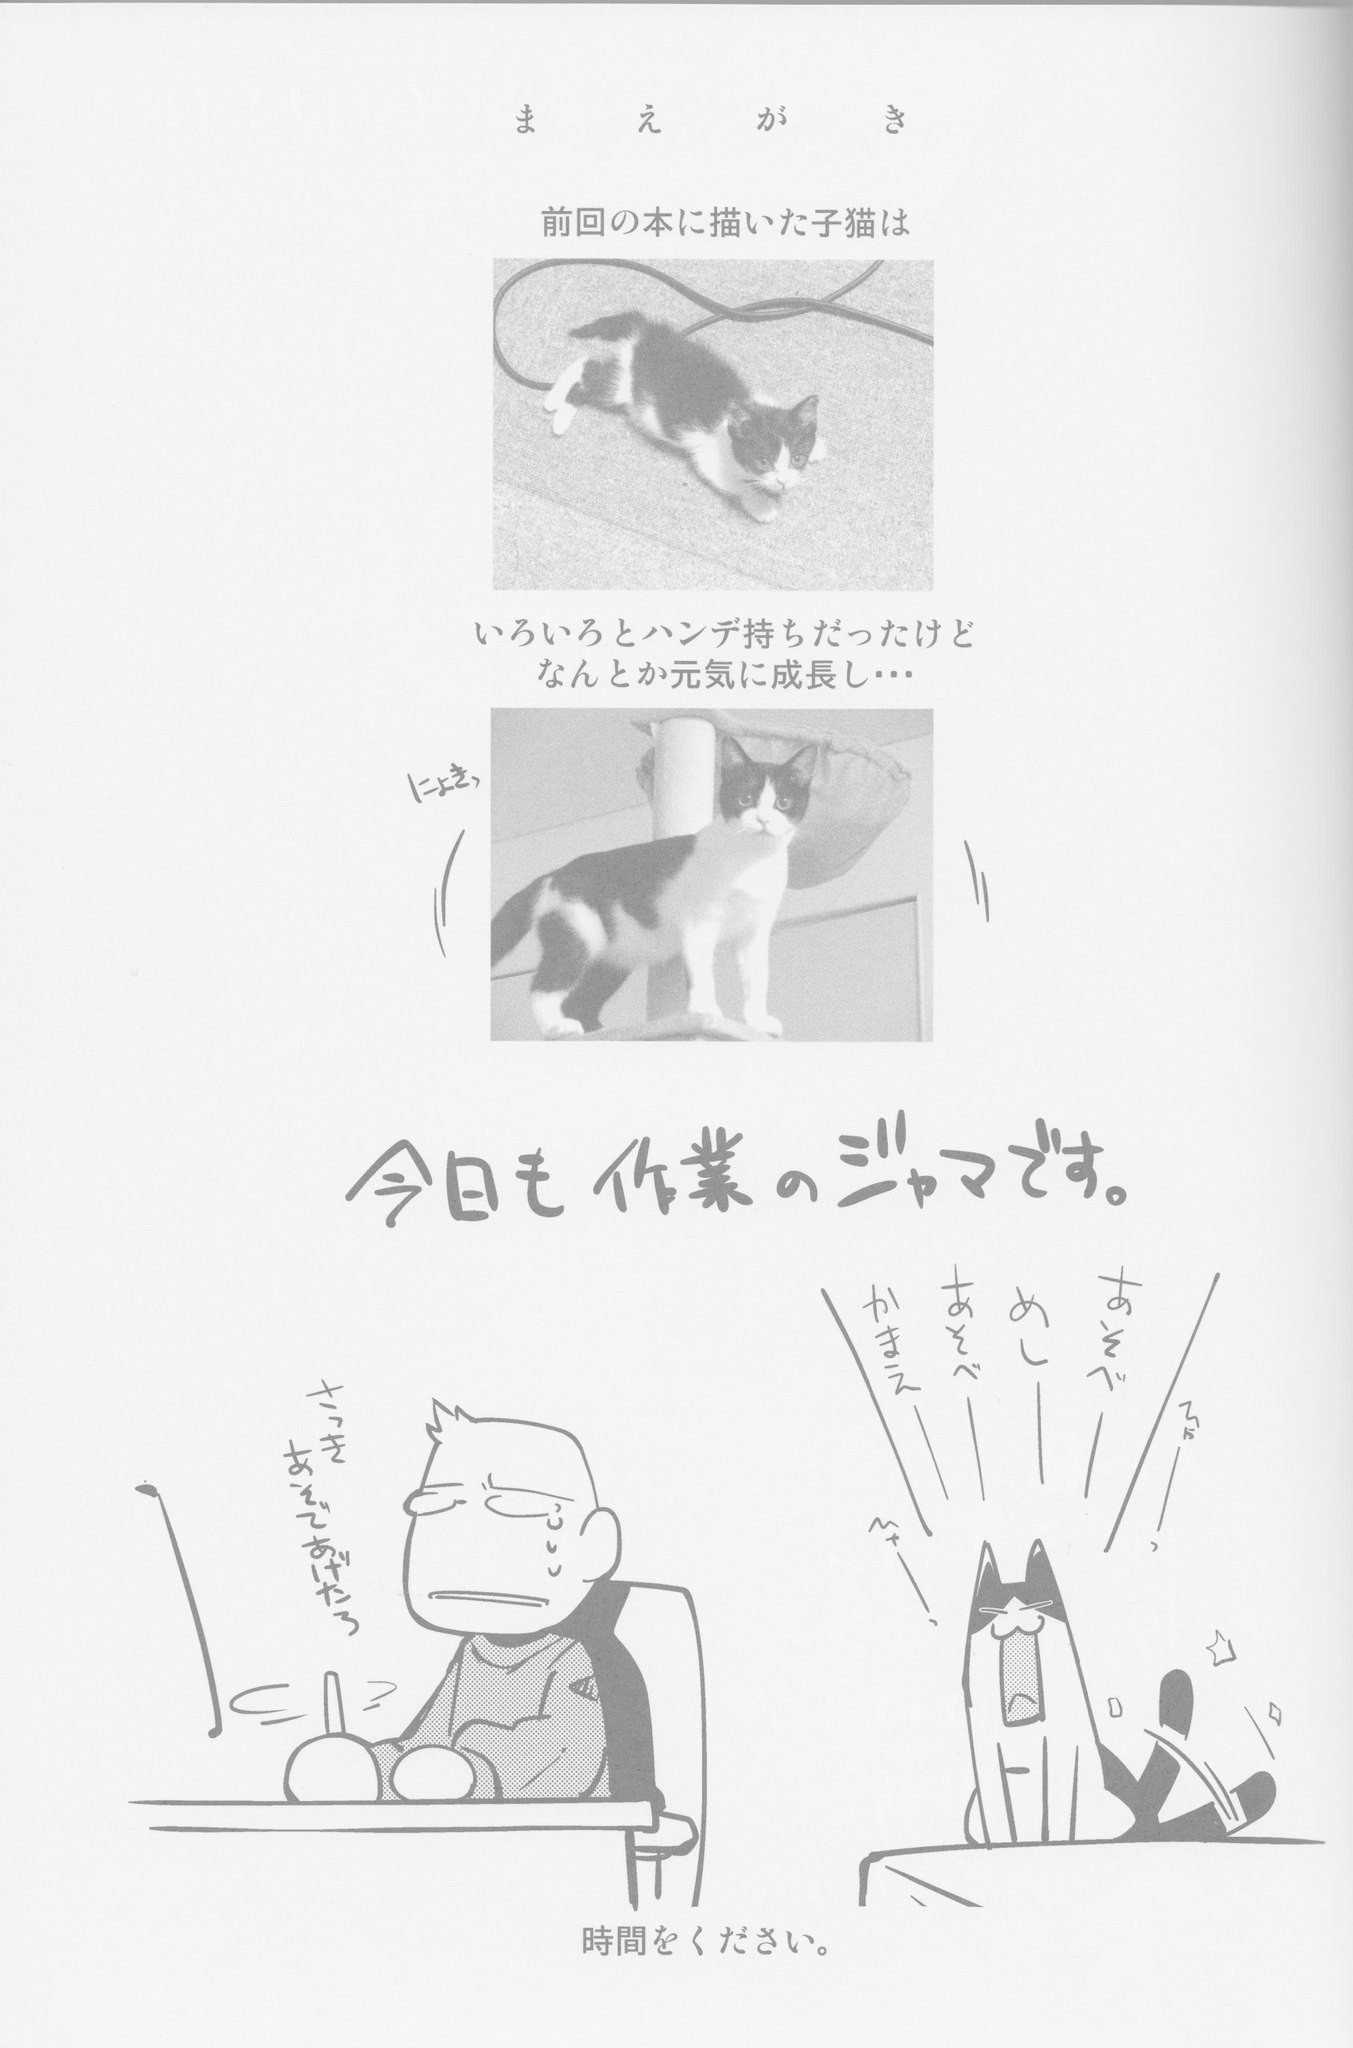 まえがき
前回の本に描いた子猫は
いろいろとハンデ持ちだったけど
なんとか元気に成長し…
にょきっ
今日も作業のジャマです。
あそべ
めし
あそべ
かまえ
さっき
あそであげたろ
時間をください。